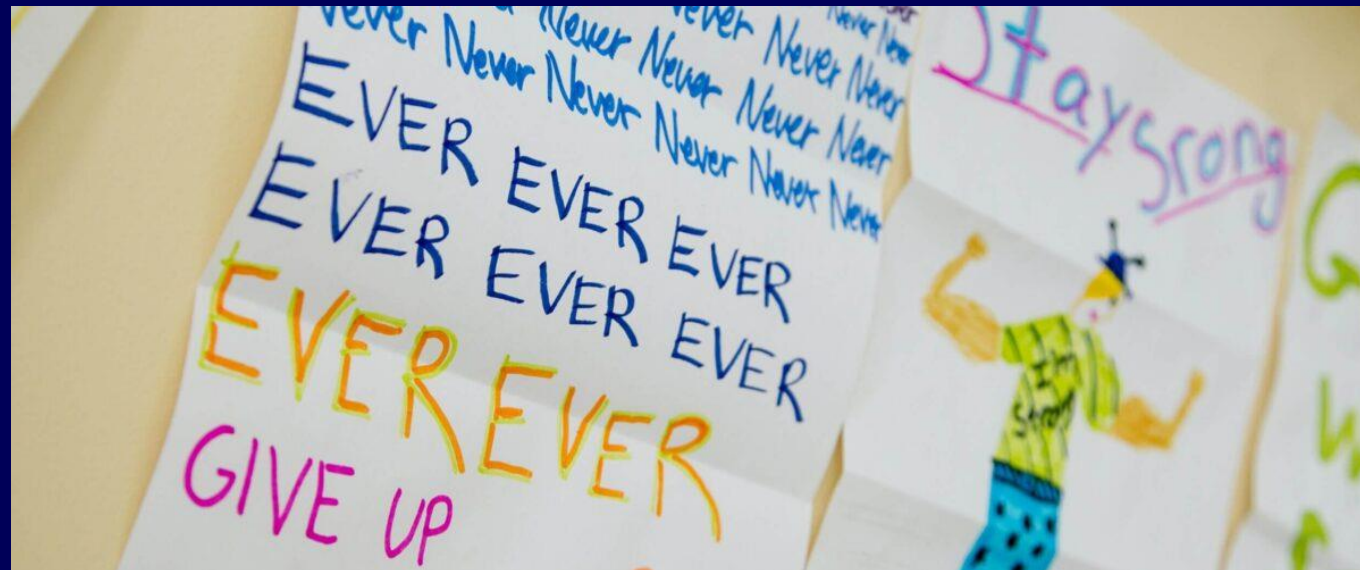 Never
Never Never Never
Never Never Never Never
Never Never Never Never Never Never
EVER EVER EVER
EVER EVER EVER
EVER EVER
GIVE UP
Stay srong
I'm
strong